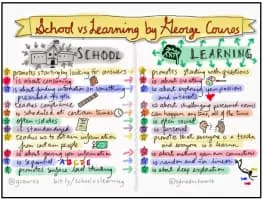 School vs Learning by George Couros
SCHOOL
promotes starting by looking for answers
is about consuming
is about finding information on something
prescribed for you
teaches compliance
is scheduled at certain times
often isolates
is standardized
teaches us to obtain information
from certain people
is about giving you information
is sequential
promotes surface level thinking
@gcouros
LEARNING
promotes starting with questions
is about creating
is about exploring your passions
and interests
is about challenging perceived norms
can happen anytime, all of the time
is often social
is personal
promotes that everyone is a teacher
and everyone is a learner
is about making your own connections
is random and non-linear
is about deep exploration